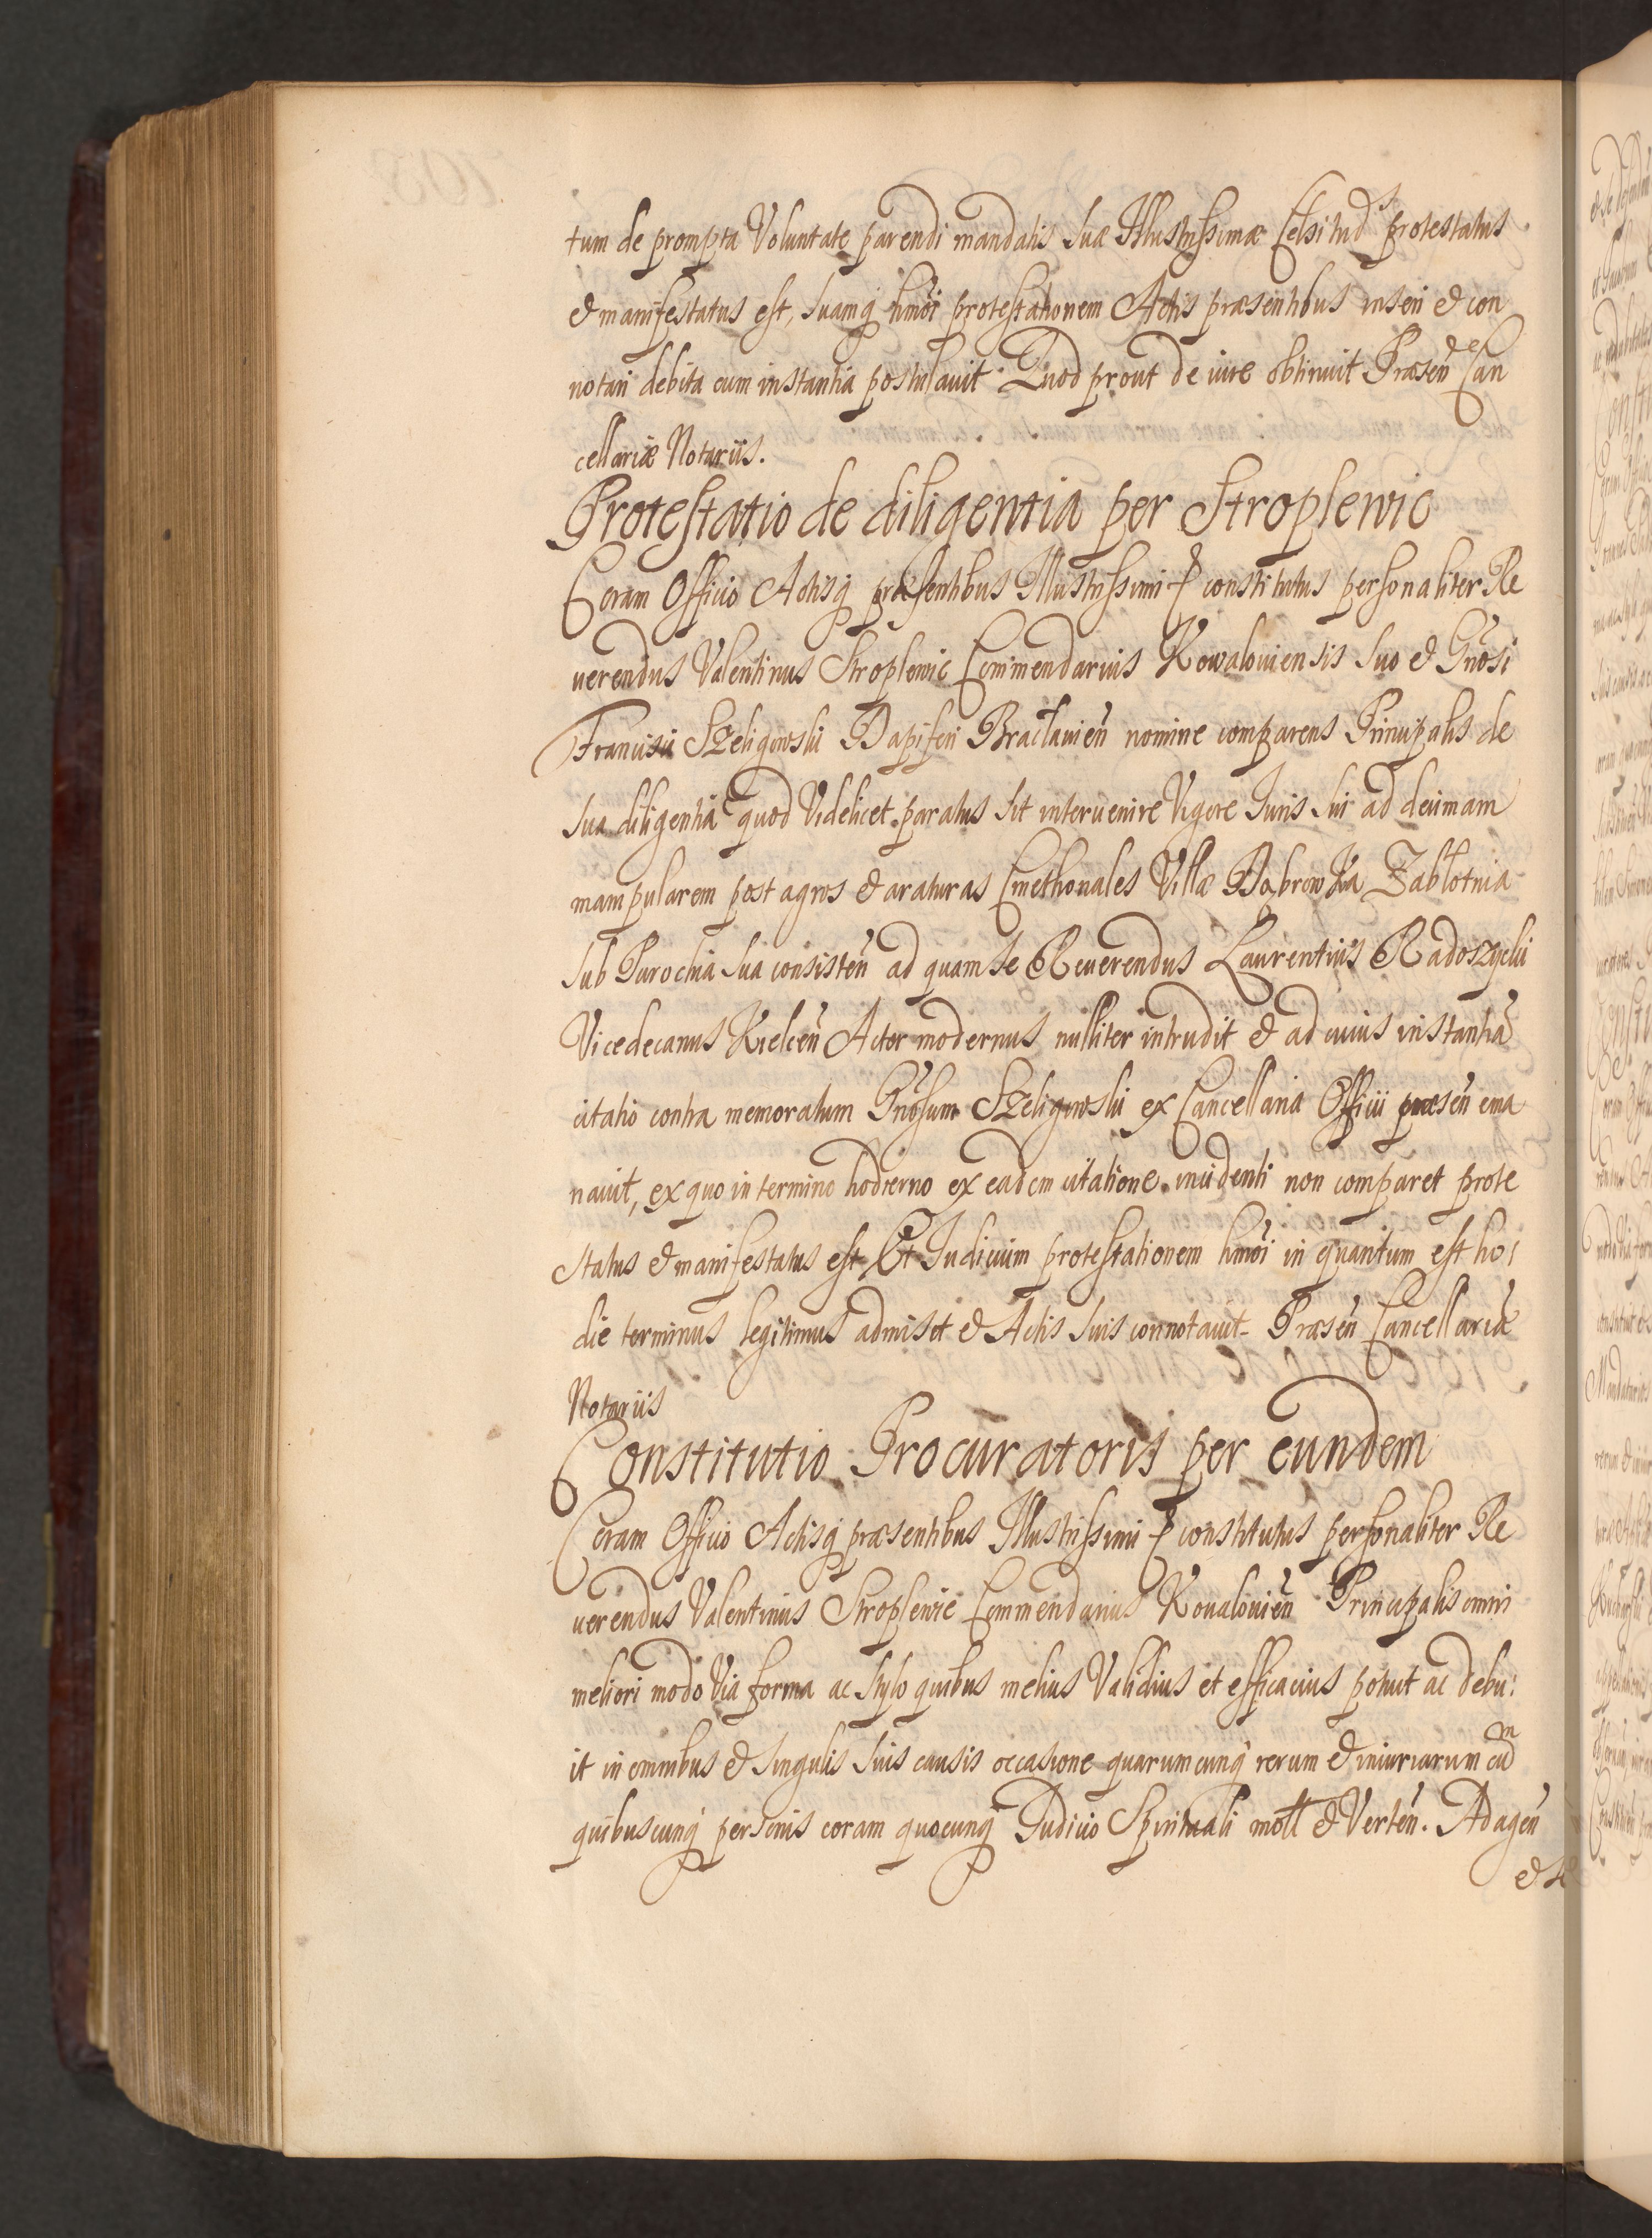 tum de prompta Voluntate parendi mandatis Suæ Illustrissimæ Celsitud̃s protestatus
& manifestatus est, Suamq̃ hmõi protestationem Actis præsentibus inseri & con
notari debita cum instantia postulavit. Quod prout de iure obtinuit Præseñ Can
cellariæ Notariis.
Protestatio de diligentia per Stroplewic
Coram Officio Actisq̃ præsentibus Illustrissimi constitutus personaliter Re
uerendus Valentinus Stroplewic Commendarius Kowalouiensis Suo & Gnõsi
Francisci Szeligowski Dapiferi Braclauieñ nomine comparens Principalis de
Sua diligentiã quod Videlicet paratus Sit interuenire Vigore Iuris Sui ad decimam
manipularem post agros & araturas Cmethonales Villæ Dąbrowka Zabłotnia
Sub Parochia Sua consisteñ ad quam Se Reuerendus Laurentius Radoszycki
Vicedecanus Kielceñ Actor modernus nulliter intrudit & ad cuius instantiã
citatio contra memoratum Gnõsum Szeligowski ex Cancellaria Officii præseñ ema
nauit, ex quo in termino hodierno ex eadem citatione incidenti non comparet prote
status & manifestatus est Et Iudicium protestationem hmõi in quantum est ho:
die terminus legitimus admisit & Actis Suis connotauit. Præseñ Cancellariæ
Notariis
Constitutio Procuratoris per eundem
Coram Officio Actisq̃ præsentibus Illustrissimi constitutus personaliter Re
uerendus Valentinus Stroplewic Commendarius Koualouieñ Principalis omni
meliori modo Via forma ac Stylo quibus melius Validius et efficacius potuit ac debu:
it in omnibus & Singulis Suis causis occasione quarumcunq̃ rerum & iniuriarum cũ
quibuscunq̃ personis coram quocunq̃ Iudicio Spirituali mott & Verteñ. Ad ageñ
& Se